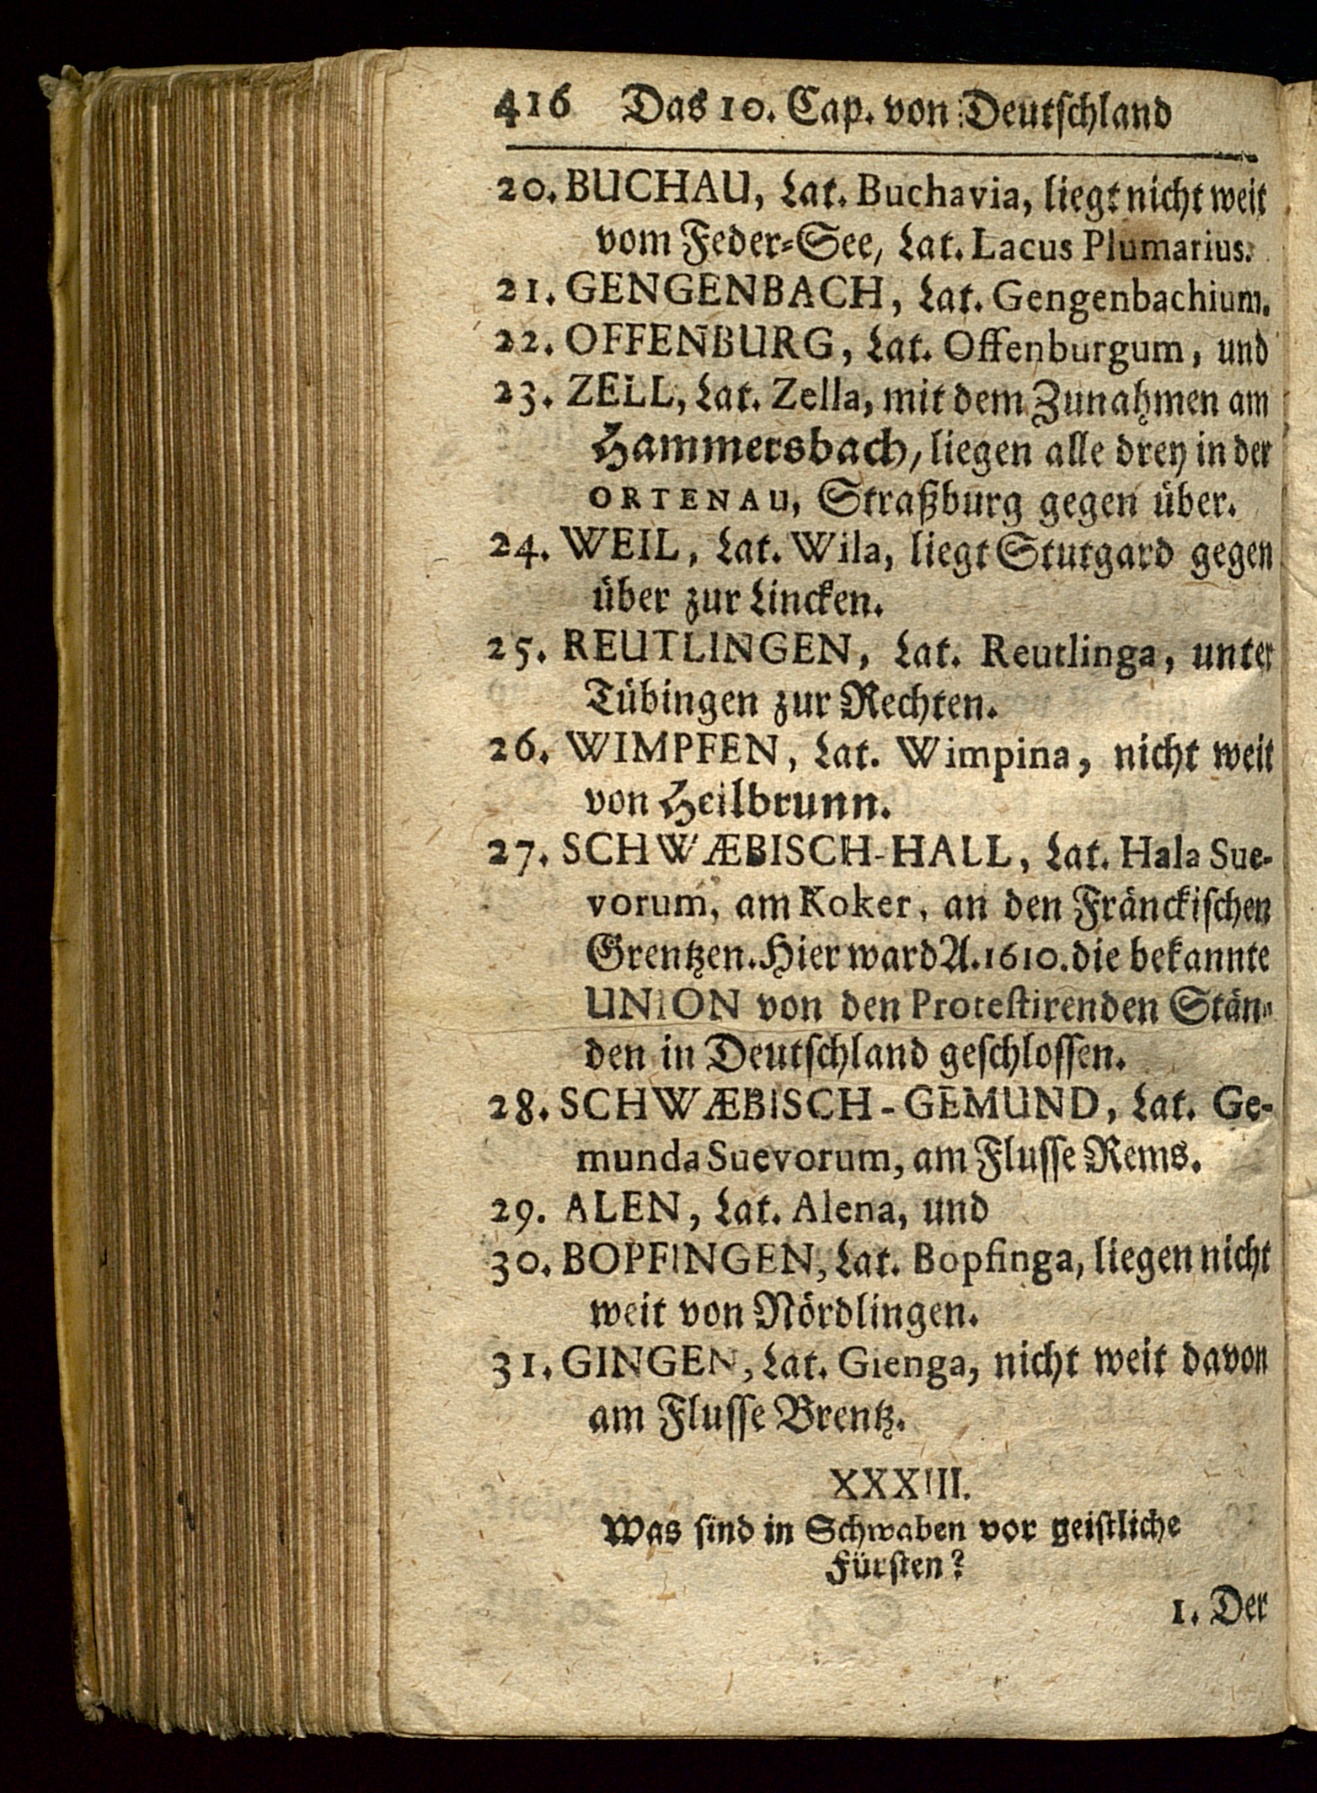 416 Das 10. Cap. von Deutschland
20. BUCHAU, Lat. Buchavia, liegt nicht weit
vom Feder-See, Lat. Lacus Plumarius.
21. GENGENBACH, Lat. Gengenbachium.
22. OFFENBURG, Lat. Offenburgum, und
23. ZELL, Lat. Zella, mit dem Zunahmen am
Hammersbach, liegen alle drey in der
ORTENAU, Straßburg gegen über.
24. WEIL, Lat. Wila, liegt Stutgard gegen
über zur Lincken.
25. REUTLINGEN, Lat. Reutlinga, unter
Tübingen zur Rechten.
26. WIMPFEN, Lat. Wimpina, nicht weit
von Heilbrunn.
27. SCHWÆBISCH-HALL, Lat. Hala Sue-
vorum, am Koker, an den Fränckischen
Grentzen. Hier ward A. 1610. die bekannte
UNION von den Protestirenden Stän-
den in Deutschland geschlossen.
28. SCHWÆBISCH-GEMUND, Lat. Ge-
munda Suevorum, am Flusse Rems.
29. ALEN, Lat. Alena, und
30. BOPFINGEN, Lat. Bopfinga, liegen nicht
weit von Nördlingen.
31. GINGEN, Lat. Gienga, nicht weit davon
am Flusse Brentz.
XXXIII.
Was sind in Schwaben vor geistliche
Fürsten?
1. Der